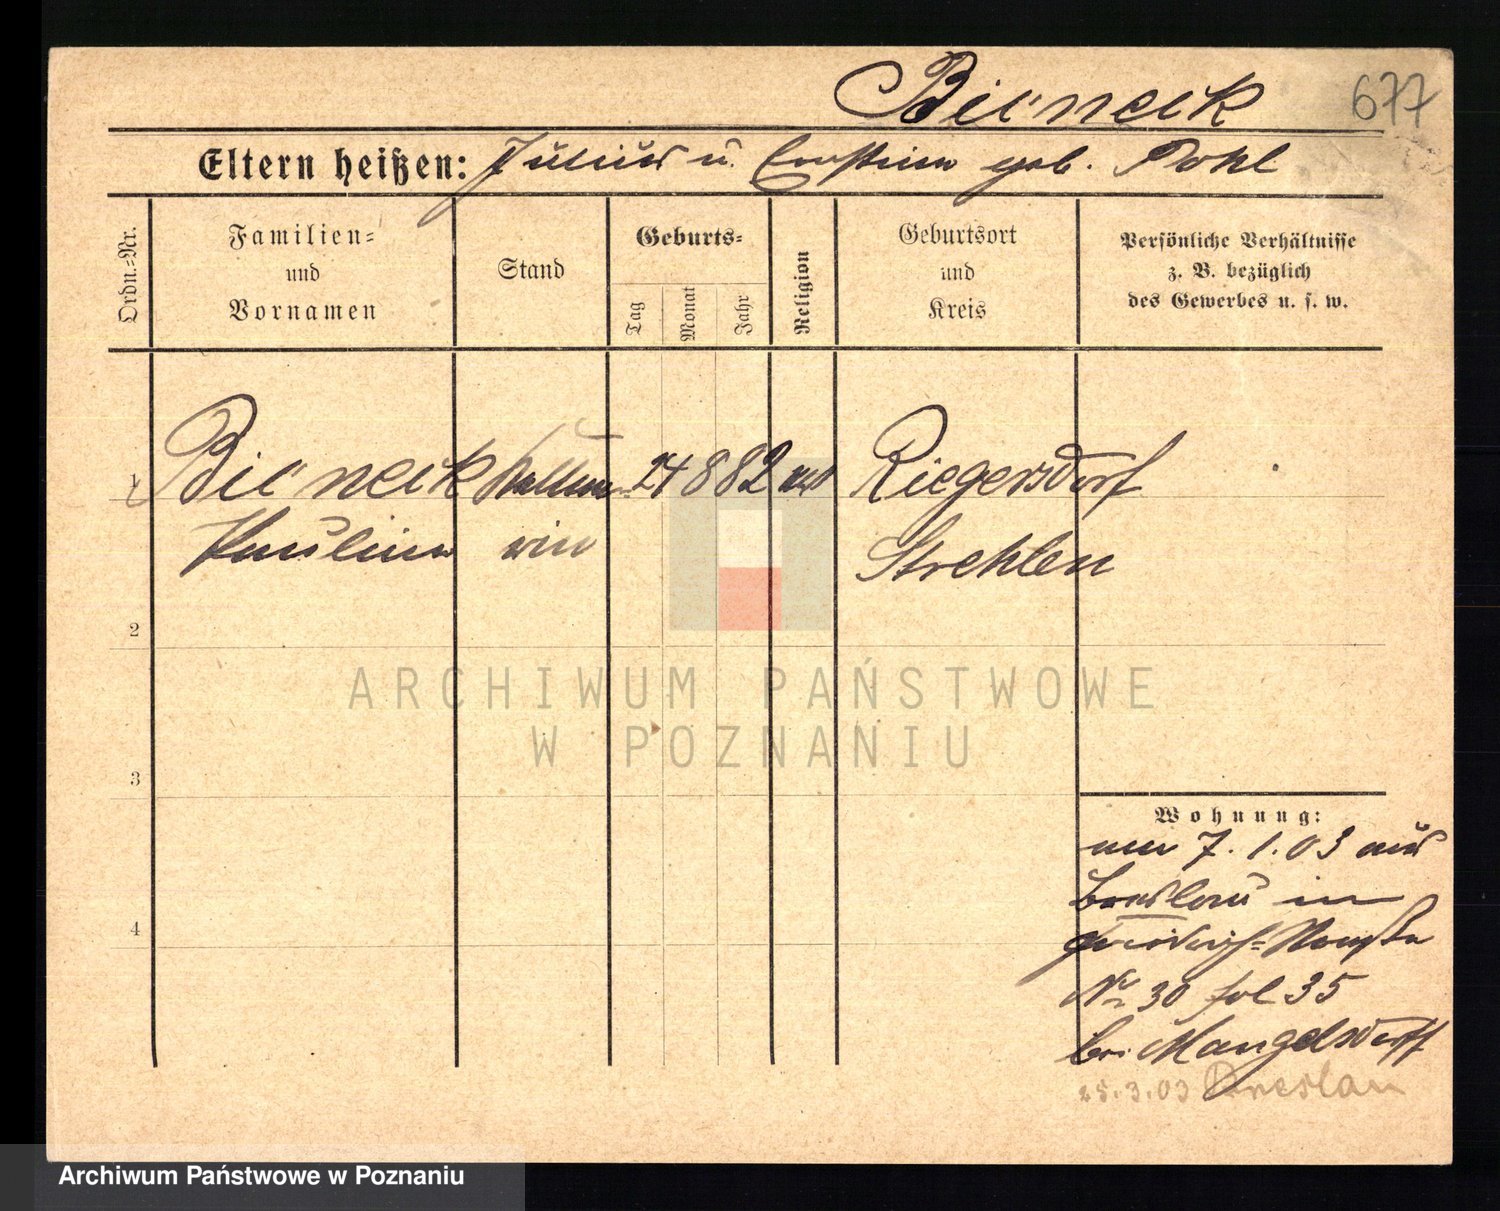 Bieneck 677
Eltern heißen: Julius u. Ernstine geb. Pohl
Ordn.-Nr.
Familien-
und
Vornamen
Stand
Geburts-
Tag
Monat
Jahr
Religion
Geburtsort
und
Kreis
Persönliche Verhältnisse
z. B. bezüglich
des Gewerbes u. s. w.
1 Bieneck Kellne- 24 8 82 Riegersdorf
Pauline rin Strehlen
2
3
4
Wohnung:
am 7.1.03 aus
Breslau in
Nr 30 fol 35
bei Mangelsdorff
25.3.03 Breslau
ARCHIWUM PAŃSTWOWE
W POZNANIU
Archiwum Państwowe w Poznaniu